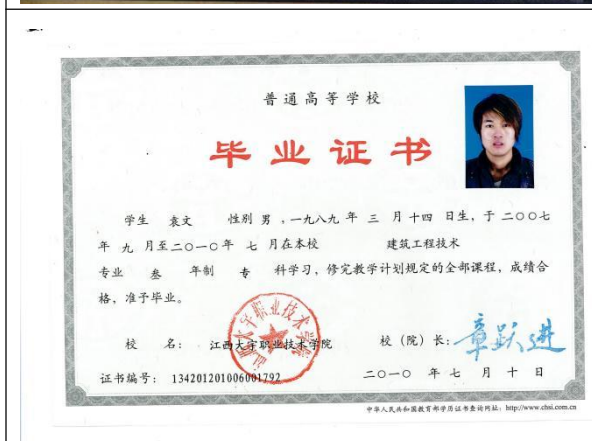 普通高等学校
毕业证书
学生 袁文 性别 男 ,一九八九 年 三 月 十四 日生, 于 二〇〇七
年 九 月至二〇一〇年 七 月在本校 建筑工程技术
专业 叁 年制 专 科学习, 修完教学计划规定的全部课程, 成绩合
格, 准予毕业。
校 名: 江西大宇职业技术学院
校(院)长: 章跃进
证书编号: 134201201006001792
二〇一〇 年 七 月 十 日
中华人民共和国教育部学历证书查询网址: http://www.chsi.com.cn
江西大宇职业技术学院